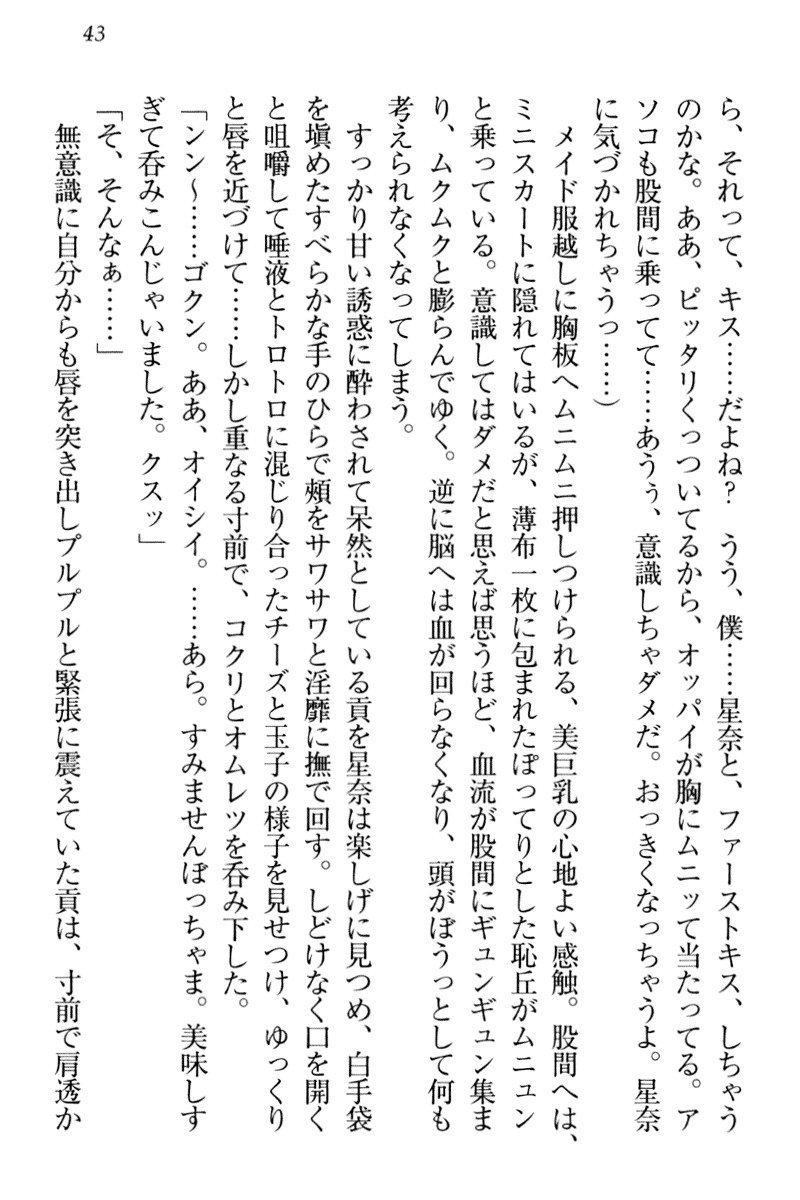 43
ら、それって、キス……だよね？　うう、僕……星奈と、ファーストキス、しちゃう
のかな。ああ、ピッタリくっついてるから、オッパイが胸にムニッて当たってる。ア
ソコも股間に乗ってて……あうぅ、意識しちゃダメだ。おっきくなっちゃうよ。星奈
に気づかれちゃうっ……）
　メイド服越しに胸板へムニムニ押しつけられる、美巨乳の心地よい感触。股間へは、
ミニスカートに隠れてはいるが、薄布一枚に包まれたぽってりとした恥丘がムニュン
と乗っている。意識してはダメだと思えば思うほど、血流が股間にギュンギュン集ま
り、ムクムクと膨らんでゆく。逆に脳へは血が回らなくなり、頭がぼうっとして何も
考えられなくなってしまう。
　すっかり甘い誘惑に酔わされて呆然としている貢を星奈は楽しげに見つめ、白手袋
を填めたすべらかな手のひらで頰をサワサワと淫靡に撫で回す。しどけなく口を開く
と咀嚼して唾液とトロトロに混じり合ったチーズと玉子の様子を見せつけ、ゆっくり
と唇を近づけて……しかし重なる寸前で、コクリとオムレツを呑み下した。
「ンン～……ゴクン。ああ、オイシイ。……あら。すみませんぼっちゃま。美味しす
ぎて呑みこんじゃいました。クスッ」
「そ、そんなぁ……」
　無意識に自分からも唇を突き出しプルプルと緊張に震えていた貢は、寸前で肩透か